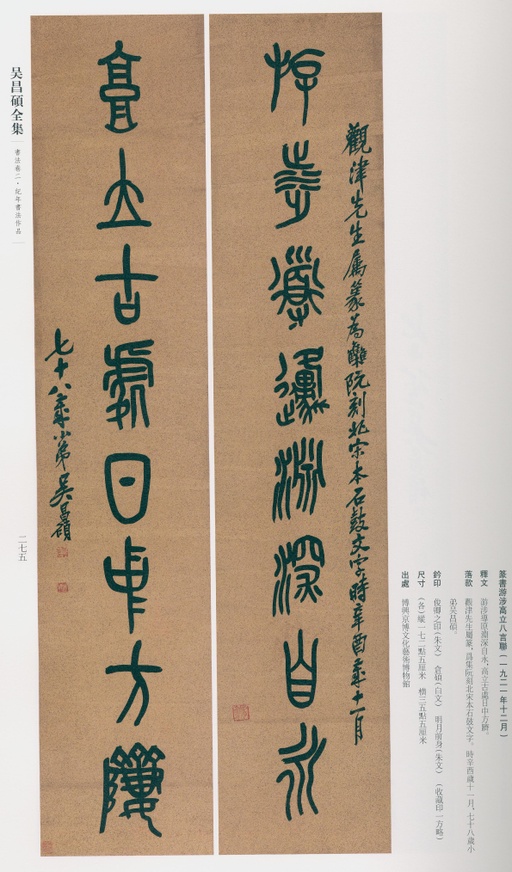 游涉導原淵深自水
觀津先生屬篆為集阮刻北宋本石鼓文字時辛酉歲十一月
高立古處日中方隮
七十八歲小弟吳昌碩
吴昌碩全集
書法卷二·紀年書法作品
二七五
篆書游涉高立八言聯（一九二一年十二月）
釋文　游涉導原淵深自水，高立古處日中方隮。
落款　觀津先生屬篆，為集阮刻北宋本石鼓文字。時辛酉歲十一月，七十八歲小
弟吴昌碩。
鈐印　俊卿之印（朱文）　倉碩（白文）　明月前身（朱文）　（收藏印一方略）
尺寸　（各）縱一七二點五厘米　橫三五點五厘米
出處　博興京博文化藝術博物館